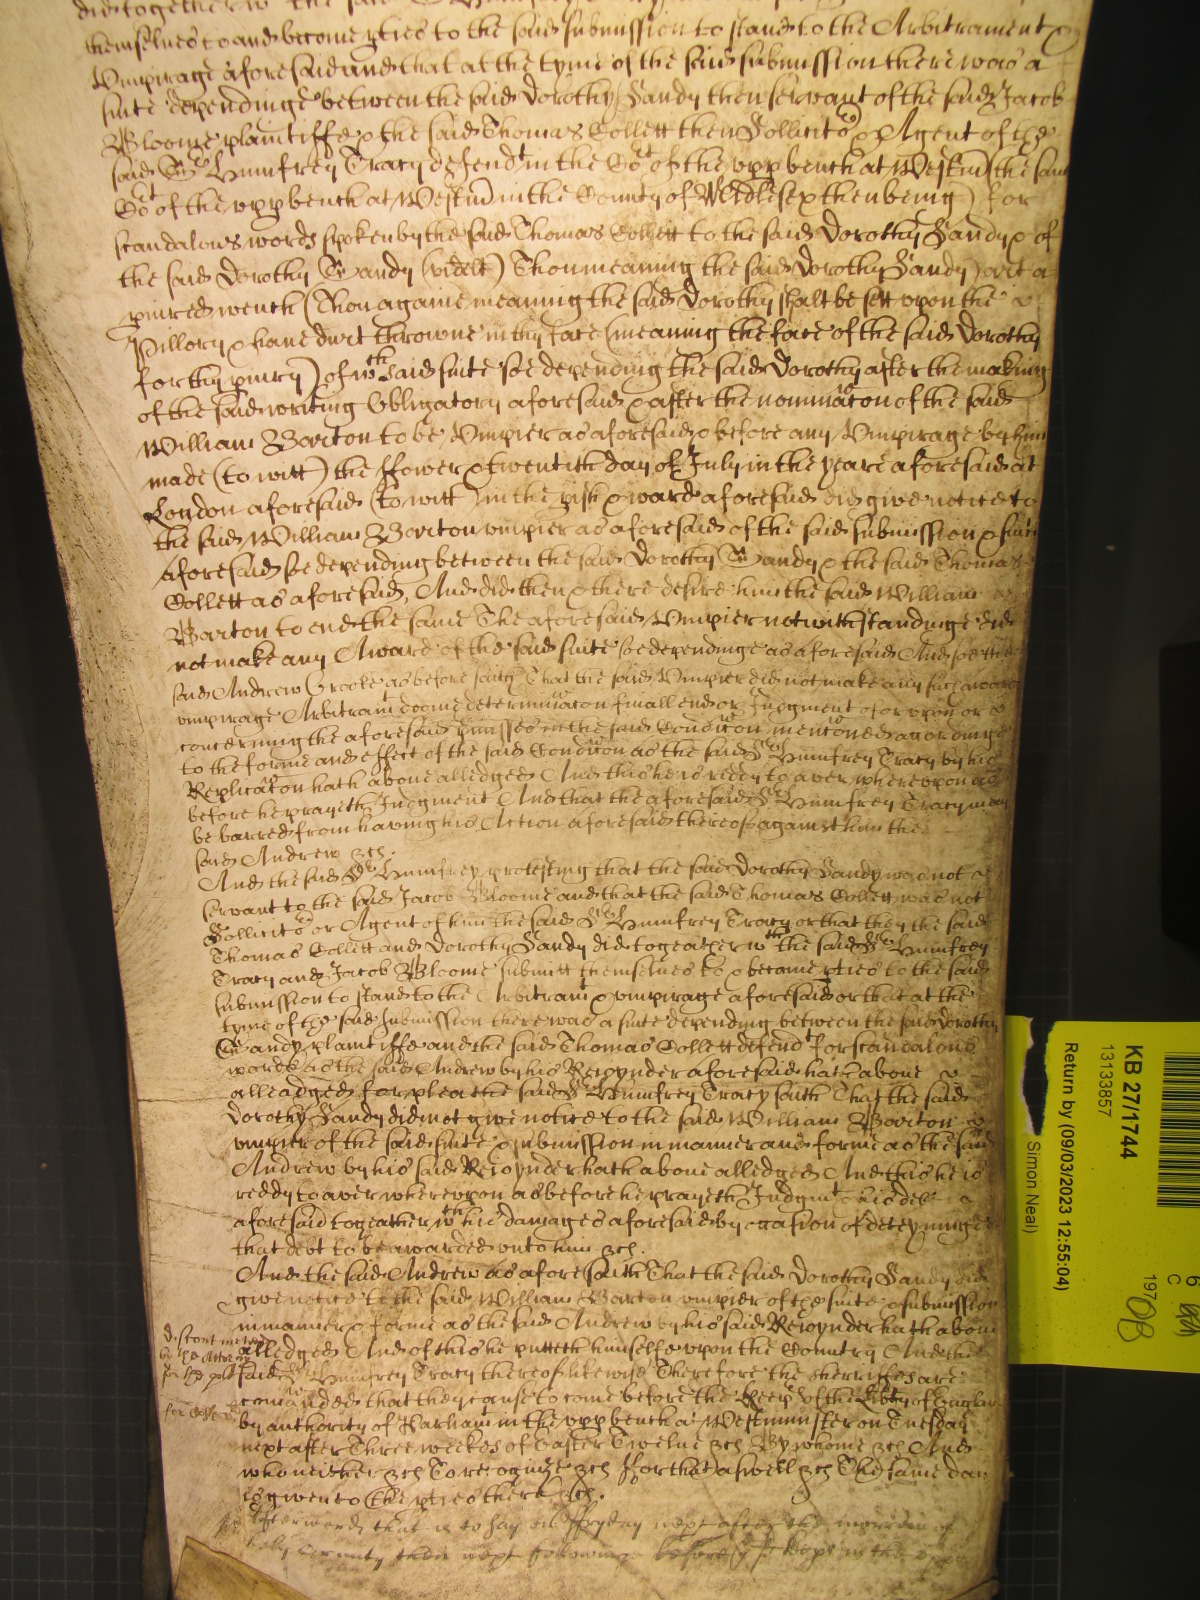 did together wth the said Sr Humfrey
themselves to and become pties to the said submission to stand to the Arbitrament &
Umpirage aforesaid and that at the tyme of the said submission there was a
suite dependinge betweene the said Dorothy Gandy then servant of the said Jacob
Bloome plaintiffe & the said Thomas Collett then Sollicitor & Agent of the
said Sr Humfrey Tracy defendt in the Cort of the upp bench at Westm (the said
Cort of the upp bench at Westm in the County of Middlesex then being) for
scandalous words spoken by the said Thomas Collett to the said Dorothy Gandy & of
the said Dorothy Gandy (videlt) Thou meaning the said Dorothy Gandy) art a
piured wench (Thou againe meaning the said Dorothy shalt be sett upon the
Pillory & have durt throwne in thy face (meaning the face of the said Dorothy
for thy piury) of wth said suite soe depending the said Dorothy after the making
of the said writing Obligatory aforesaid & after the nominacon of the said
William Barton to be Umpier as aforesaid & before any Umpirage by him
made (to witt) the ffower & twentith day of July in the yeare aforesaid at
London aforesaid (to witt) in the pish & ward aforesaid did give notice to
the said William Barton umpier as aforesaid of the said submission & suite
aforesaid soe depending betweene the said Dorothy Gandy & the said Thomas
Collett as aforesaid, And did then & there desire him the said William
Barton to end the same The aforesaid Umpier notwithstandinge did
not make any Award of the said suite soe dependinge as aforesaid And soe the
said Andrew Crooke as before saith That the said Umpier did not make any such award
umpirage Arbitramt doome determinacon finall end or Judgment of for upon or
concerning the aforesaid pmisses in the said Condicon menconed accordinge
to the forme and effect of the said Condicon as the said Sr Humfrey Tracy by his
Replicacon hath above alledged And this he is reddy to aver whereupon as
before he prayeth Judgment And that the aforesaid Sr Humfrey Tracy may
be barred from having his Action aforesaid thereof against him the
said Andrew &c.
And the said Sr Humfrey protesting that the said Dorothy Gandy was not a
servant to the said Jacob Bloome and that the said Thomas Collett was not
Sollicitor or Agent of him the said Sr Humfrey Tracy or that they the said
Thomas Collett and Dorothy Gandy did togeather wth the said Sr Humfrey
Tracy and Jacob Bloome submitt themselves to & become pties to the said
submission to stand to the Arbitramt & umpirage aforesaid or that at the
tyme of the said submission there was a suite depending betweene the said Dorothy
Gandy plaintiffe and the said Thomas Collett defendt for scandalous
words as the said Andrew by his Reioynder aforesaid hath above
alleadged for plea the said Sr Humfrey Tracy saith That the said
Dorothy Gandy did not give notice to the said William Barton
umpier of the said suite & submission in manner and forme as the said
Andrew by his said Reioynder hath above alledged And this he is
reddy to aver whereupon as before he prayeth Judgmt & his debt
aforesaid togeather wth his damages aforesaid by occasion of deteyninge
that debt to be awarded unto him &c.
And the said Andrew as afore saith That the said Dorothy Gandy did
give notice to the said William Barton umpier of the suite & submission
in manner & forme as the said Andrew by his said Reioynder hath above
alledged And of this he putteth himselfe upon the Country And the
said Sr Humfrey Tracy thereof likewise Therefore the sherriffes are
comanded that they cause to come before the Keeps of the Libty of England
by authority of Parliamt in the upp bench at Westminster on Tuesday
next after Three weekes of Easter Twelve &c By whome &c And
who neither &c To recognize &c fforthat aswell &c The same day
is given to the pties there &c.
Afterwards that is to say on ffryday next after the morrow of
holy Trinity then next followinge before
KB 27/1744
13133857
Return by (09/03/2023 12:55:04)
Simon Neal)